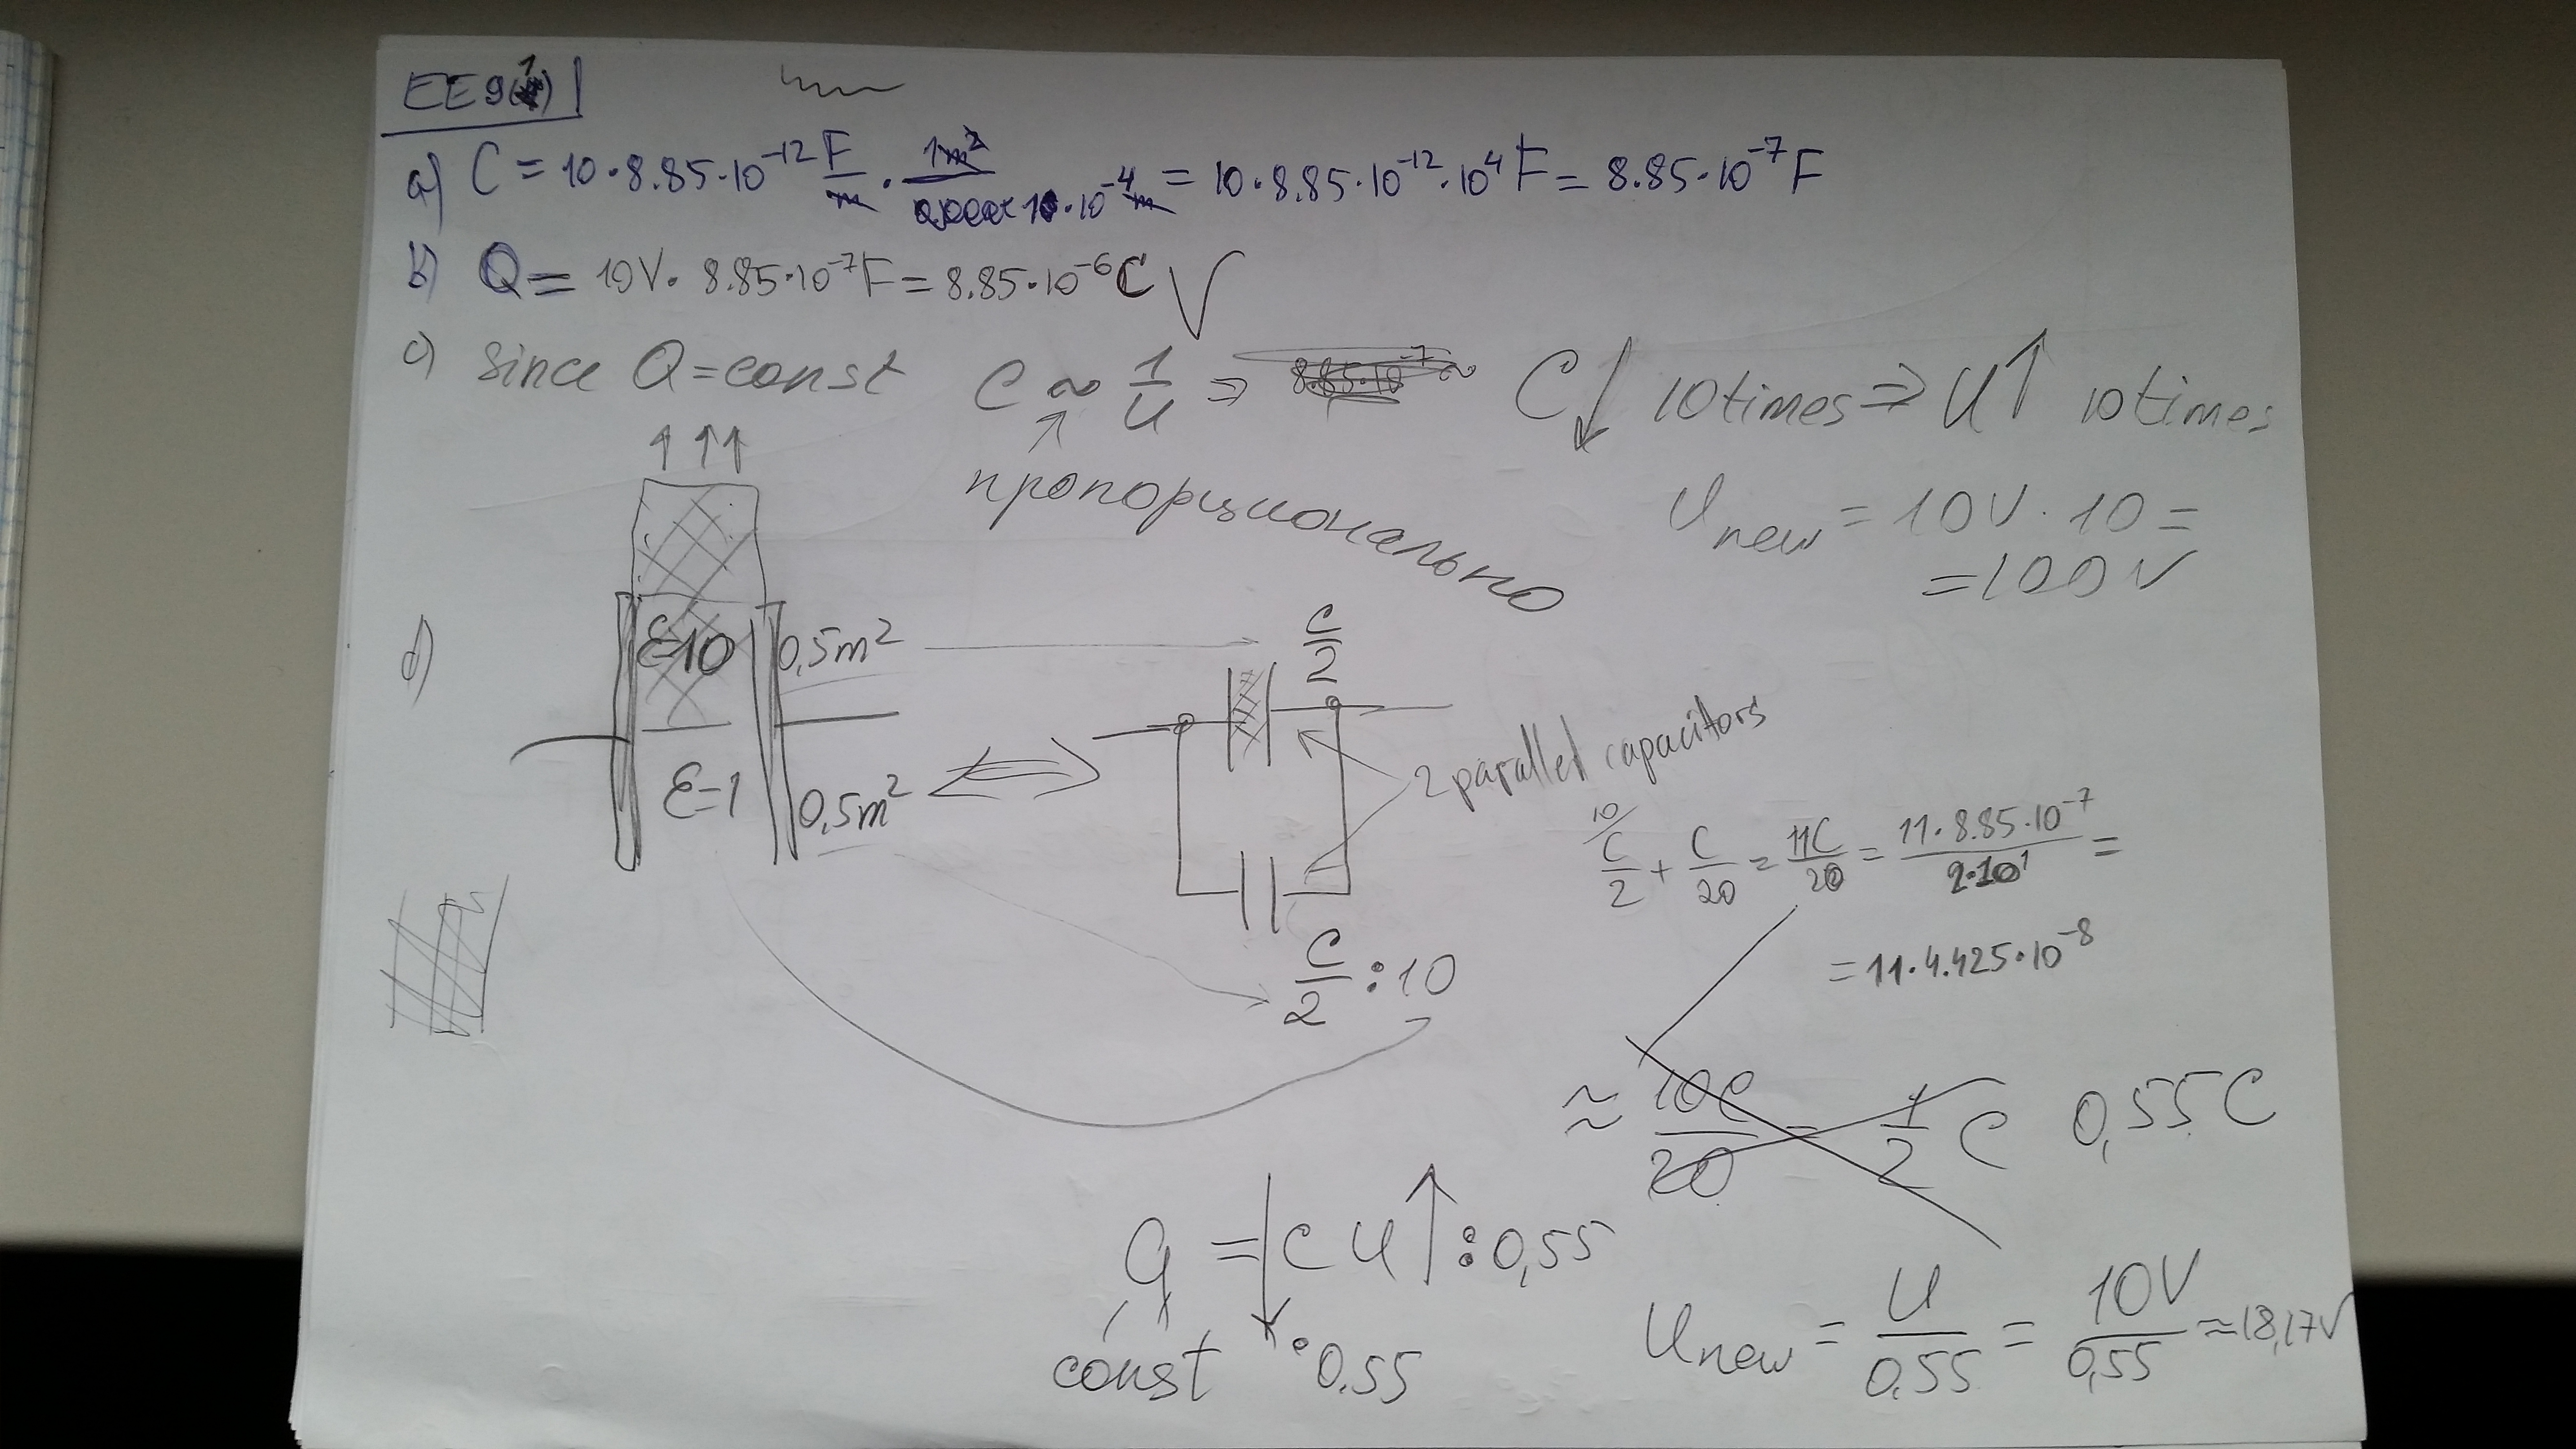 EE9(1)
a) C = 10·8.85·10⁻¹² F/m · 1m²/1·10⁻⁴m = 10·8.85·10⁻¹²·10⁴ F = 8.85·10⁻⁷ F
b) Q = 10V· 8.85·10⁻⁷F = 8.85·10⁻⁶ C √
c) since Q = const C ~ 1/U ⇒ 8.85·10⁻⁷ ~ C↓ 10 times ⇒ U↑ 10 times
пропорционально
Unew = 10V · 10 =
= 100V
d)
ε=10 0,5m²
C/2
ε=1 0,5m²
2 parallel capacitors
10/ C/2 + C/20 = 11C/20 = 11·8.85·10⁻⁷/2·10¹ =
= 11·4.425·10⁻⁸
C/2 : 10
≈ 10C/20 = 1/2 C 0,55C
q = ↓C U↑ : 0,55
const · 0.55
Unew = U/0,55 = 10V/0,55 ≈ 18,17V